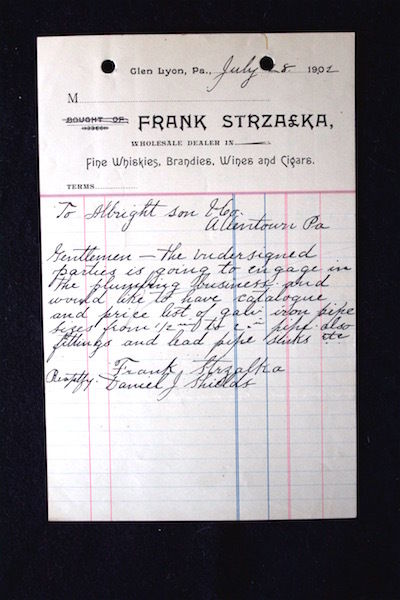 Glen Lyon, Pa., July 28. 1902
M
BOUGHT OF FRANK STRZAŁKA,
WHOLESALE DEALER IN
Fine Whiskies, Brandies, Wines and Cigars.
TERMS
To Albright son & Co.
Allentown Pa
Gentlemen – the undersigned
parties is going to engage in
the plumbing business and
would like to have catalogue
and price list of galv iron pipe
sizes from 1/2 to 2 pipe also
fittings and lead pipe sinks etc
Frank Strzalka
Daniel J Shields